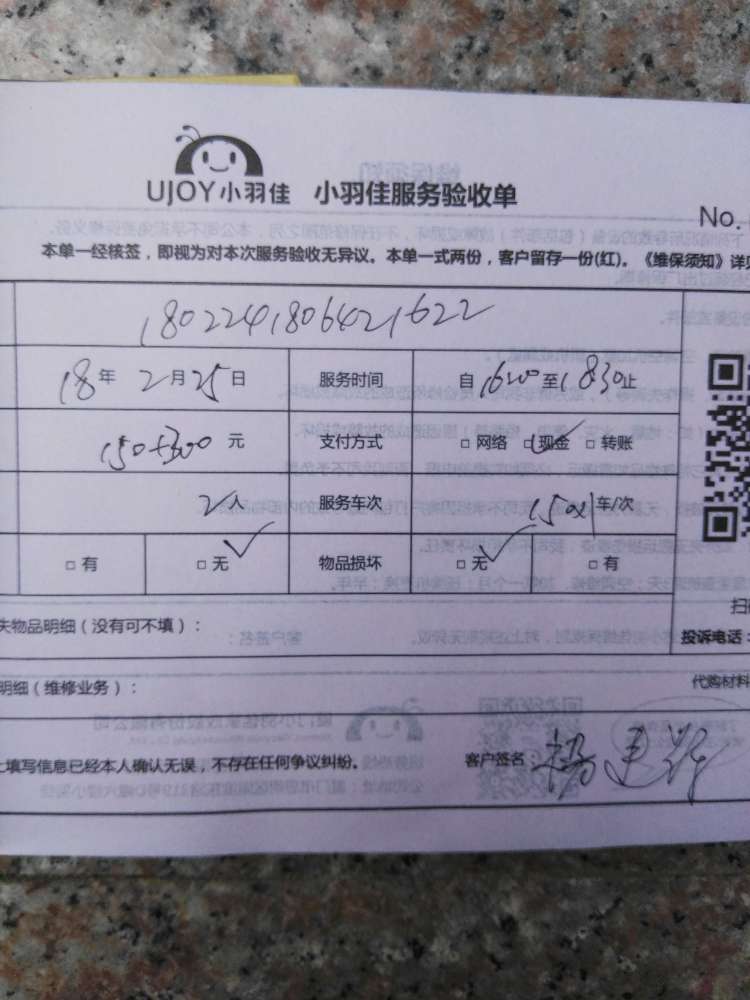 UJOY小羽佳 小羽佳服务验收单
No.
本单一经核签，即视为对本次服务验收无异议。本单一式两份，客户留存一份(红)。《维保须知》详见
1802241806421622
18年 2月25日 服务时间 自1620至1830止
150+300元 支付方式 □ 网络 □ 现金 □ 转账
2人 服务车次 车/次
□ 有 □ 无 物品损坏 □ 无 □ 有
失物品明细（没有可不填）：
投诉电话：
明细（维修业务）：
代购材料
上填写信息已经本人确认无误，不存在任何争议纠纷。 客户签名 杨